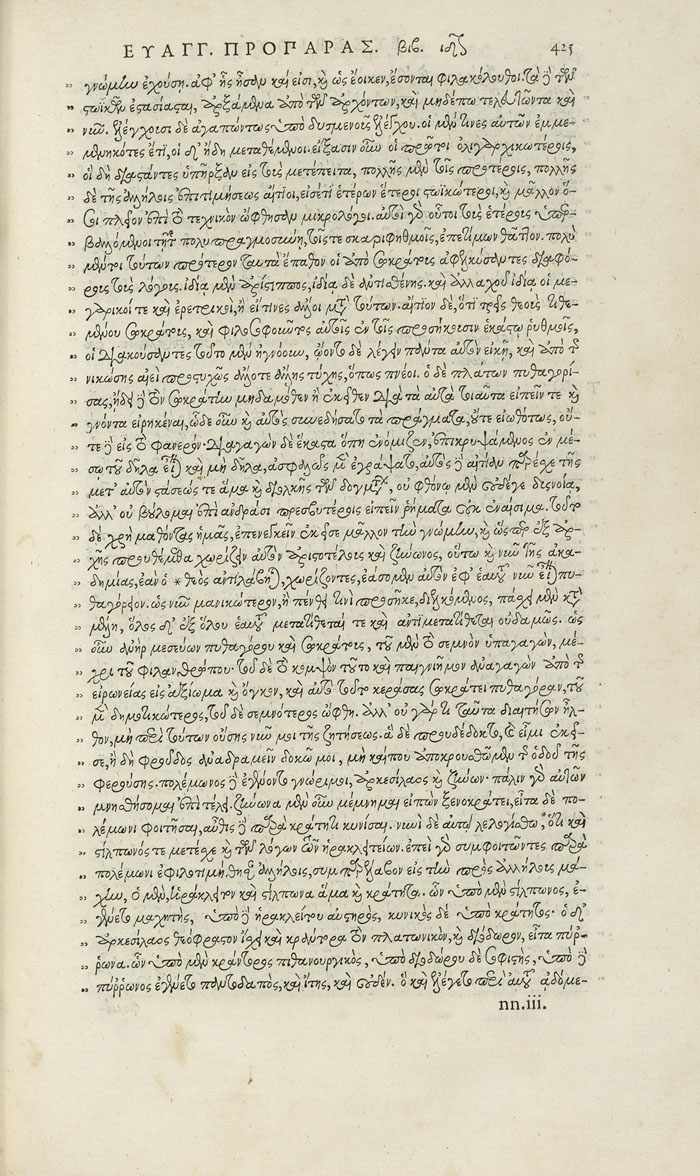 ΕΥΑΓΓ. ΠΡΟΠΑΡΑΣ. βιβ. ιδʹ 425
γνώμην ἐχούση. ἀφ' ἧς ἦσαν καί εἰσι, καὶ ὡς ἔοικεν, ἔσονται φιλακόλουθοι. τὰ δὲ τῶν
στωικῶν ἐστασίασται, ἀρξάμενα ἀπὸ τῶν ἀρχόντων, καὶ μηδέπω τελευτῶντα καὶ
νῦν. ἐλέγχουσι δὲ ἀγαπώντως ὑπὸ δυσμενοῦς ἐλέγχου. οἱ μέν τινες αὐτῶν ἐμμε-
μενηκότες ἔτι, οἱ δ' ἤδη μεταθέμενοι. εἴξασιν οὖν οἱ πρῶτοι ὀλιγαρχικωτέροις,
οἳ δὴ διαστάντες ὑπῆρξαν εἰς τοὺς μετέπειτα, πολλῆς μὲν τοῖς προτέροις, πολλῆς
δὲ τῆς ἀλλήλοις ἐπιτιμήσεως αἴτιοι, εἰσέτι ἑτέρων ἕτεροι στωικώτεροι, καὶ μᾶλλον ὅ-
σοι πλεῖον ἐπὶ τὸ τεχνικὸν ὤφθησαν μικρολόγοι. αὐτοὶ γὰρ οὗτοι τοὺς ἑτέρους ὑπερ-
βαλλόμενοι τῇ τε πολυπραγμοσύνῃ, τοῖς τε σκαριφηθμοῖς, ἐπετίμων θᾶττον. πολὺ
μέντοι τούτων πρότερον ταυτὰ ἔπαθον οἱ ἀπὸ σωκράτους ἀφελκύσαντες διαφό-
ρους τοὺς λόγους. ἰδίᾳ μὲν ἀρίστιππος, ἰδίᾳ δὲ ἀντισθένης. καὶ ἀλλαχοῦ ἰδίᾳ οἱ με-
γαρικοί τε καὶ ἐρετρικοὶ, ἢ εἴ τινες ἄλλοι μετὰ τούτων. αἴτιον δὲ, ὅτι τρεῖς θεοὺς τιθε-
μένου σωκράτους, καὶ φιλοσοφοῦντος αὐτοῖς ἐν τοῖς προσήκουσιν ἑκάστῳ ῥυθμοῖς,
οἱ διακούσαντες τοῦτο μὲν ἠγνόουν, ᾤοντο δὲ λέγειν πάντα αὐτὸν εἰκῆ, καὶ ἀπὸ τῆς
νικώσης αἰεὶ προστυχῶς ἄλλοτε ἄλλης τύχης, ὅπως πνέοι. ὁ δὲ πλάτων πυθαγορί-
σας, ᾔδει δὲ τὸν σωκράτην μηδαμόθεν ἢ ἐκεῖθεν δὴ τὰ αὐτὰ ταῦτα εἰπεῖν τε καὶ
γνόντα εἰρηκέναι, ὧδε οὖν καὶ αὐτὸς συνεδήσατο τὰ πράγματα, οὔτε εἰωθότως, οὔ-
τε δὲ εἰς τὸ φανερόν. διαγαγὼν δὲ ἕκαστα ὅπῃ ἐνόμιζεν, ἐπικρυψάμενος ἐν μέ-
σῳ τοῦ δῆλα εἶναι καὶ μὴ δῆλα, ἀσφαλῶς μὲν ἐγράψατο, αὐτὸς δὲ αἰτίαν παρέσχε τῆς
μετ' αὐτὸν στάσεώς τε ἅμα καὶ διολκῆς τῶν δογμάτων, οὐ φθόνῳ μὲν οὐδέ γε δυσνοίᾳ,
ἀλλ' οὐ βούλομαι ἐπὶ ἀνδράσι πρεσβυτέροις εἰπεῖν ῥήματα οὐκ ἐναίσιμα. τοῦτο
δὲ χρὴ μαθόντας ἡμᾶς, ἐπενεγκεῖν ἐκεῖσε μᾶλλον τὴν γνώμην, καὶ ὥσπερ ἐξ ἀρ-
χῆς προυθέμεθα χωρίζειν αὐτὸν ἀριστοτέλους καὶ ζήνωνος, οὕτω καὶ νῦν τῆς ἀκα-
δημίας, ἐὰν ὁ * θεὸς ἀντιλάβηται, χωρίζοντες, ἐάσομεν αὐτὸν ἐφ' ἑαυτοῦ νῦν εἶναι πυ-
θαγόρειον. ὡς νῦν μανικώτερον, ἢ πενθεῖ τινὶ προσῆκε, διελκόμενος, πάσχει μὲν κατὰ
μέλη, ὅλος δ' ἐξ ὅλου ἑαυτοῦ μετατίθεταί τε καὶ ἀντιμετατίθεται οὐδαμῶς. ὡς
οὖν ἀνὴρ μεσεύων πυθαγόρου καὶ σωκράτους, τοῦ μὲν τὸ σεμνὸν ὑπαγαγὼν, μέ-
χρι τοῦ φιλανθρώπου. τοῦ δὲ τὸ κομψὸν τοῦτο καὶ παιγνιῆμον ἀναγαγὼν ἀπὸ τῆς
εἰρωνείας εἰς ἀξίωμα καὶ ὄγκον, καὶ αὐτὸ τοῦτο κεράσας σωκράτει πυθαγόραν, τοῦ
μὲν δημοτικώτερος, τοῦ δὲ σεμνότερος ὤφθη. ἀλλ' οὐ γάρ τι ταῦτα διαιτήσων ἦλ-
θον, μὴ περὶ τούτων οὔσης νῦν μοι τῆς ζητήσεως. ἃ δὲ προυδέδοκτο, καὶ εἶμι ἐκεῖ-
σε, ἢ δὴ φροῦδος ἀναδραμεῖν δοκῶ μοι, μὴ καί που ἀποκρουσθῶμεν τῆς ὁδοῦ τῆς
φερούσης. πολέμωνος δὲ ἐγένοντο γνώριμοι, ἀρκεσίλαος καὶ ζήνων. πάλιν γὰρ αὐτῶν
μνησθήσομαι ἐπὶ τέλει. ζήνωνα μὲν οὖν μέμνημαι εἰπὼν ξενοκράτει, εἶτα δὲ πο-
λέμωνι φοιτῆσαι, αὖθις δὲ παρὰ κράτητι κυνίσαι. νυνὶ δὲ αὐτῷ λελογίσθω, ὅτι καὶ
στίλπωνός τε μετέσχε καὶ τῶν λόγων τῶν ἡρακλειτείων. ἐπεὶ γὰρ συμφοιτῶντες παρὰ
πολέμωνι ἐφιλοτιμήθησαν ἀλλήλοις, συμπαρέλαβον εἰς τὴν πρὸς ἀλλήλους μά-
χην, ὁ μὲν, ἡράκλειτον καὶ στίλπωνα ἅμα καὶ κράτητα. ὧν ὑπὸ μὲν στίλπωνος, ἐ-
γένετο μαχητὴς, ὑπὸ δὲ ἡρακλείτου αὐστηρὸς, κυνικὸς δὲ ὑπὸ κράτητος. ὁ δ'
ἀρκεσίλαος θεόφραστον ἴσχει καὶ κράντορα τὸν πλατωνικὸν, καὶ διόδωρον, εἶτα πύρ-
ρωνα. ὧν ὑπὸ μὲν κράντορος πιθανουργικὸς, ὑπὸ διοδώρου δὲ σοφιστὴς, ὑπὸ δὲ
πύρρωνος ἐγένετο παντοδαπὸς, καὶ ἴτης, καὶ οὐδέν. ὃ καὶ ἐλέγετο περὶ αὐτοῦ ᾀδόμε-
nn.iii.